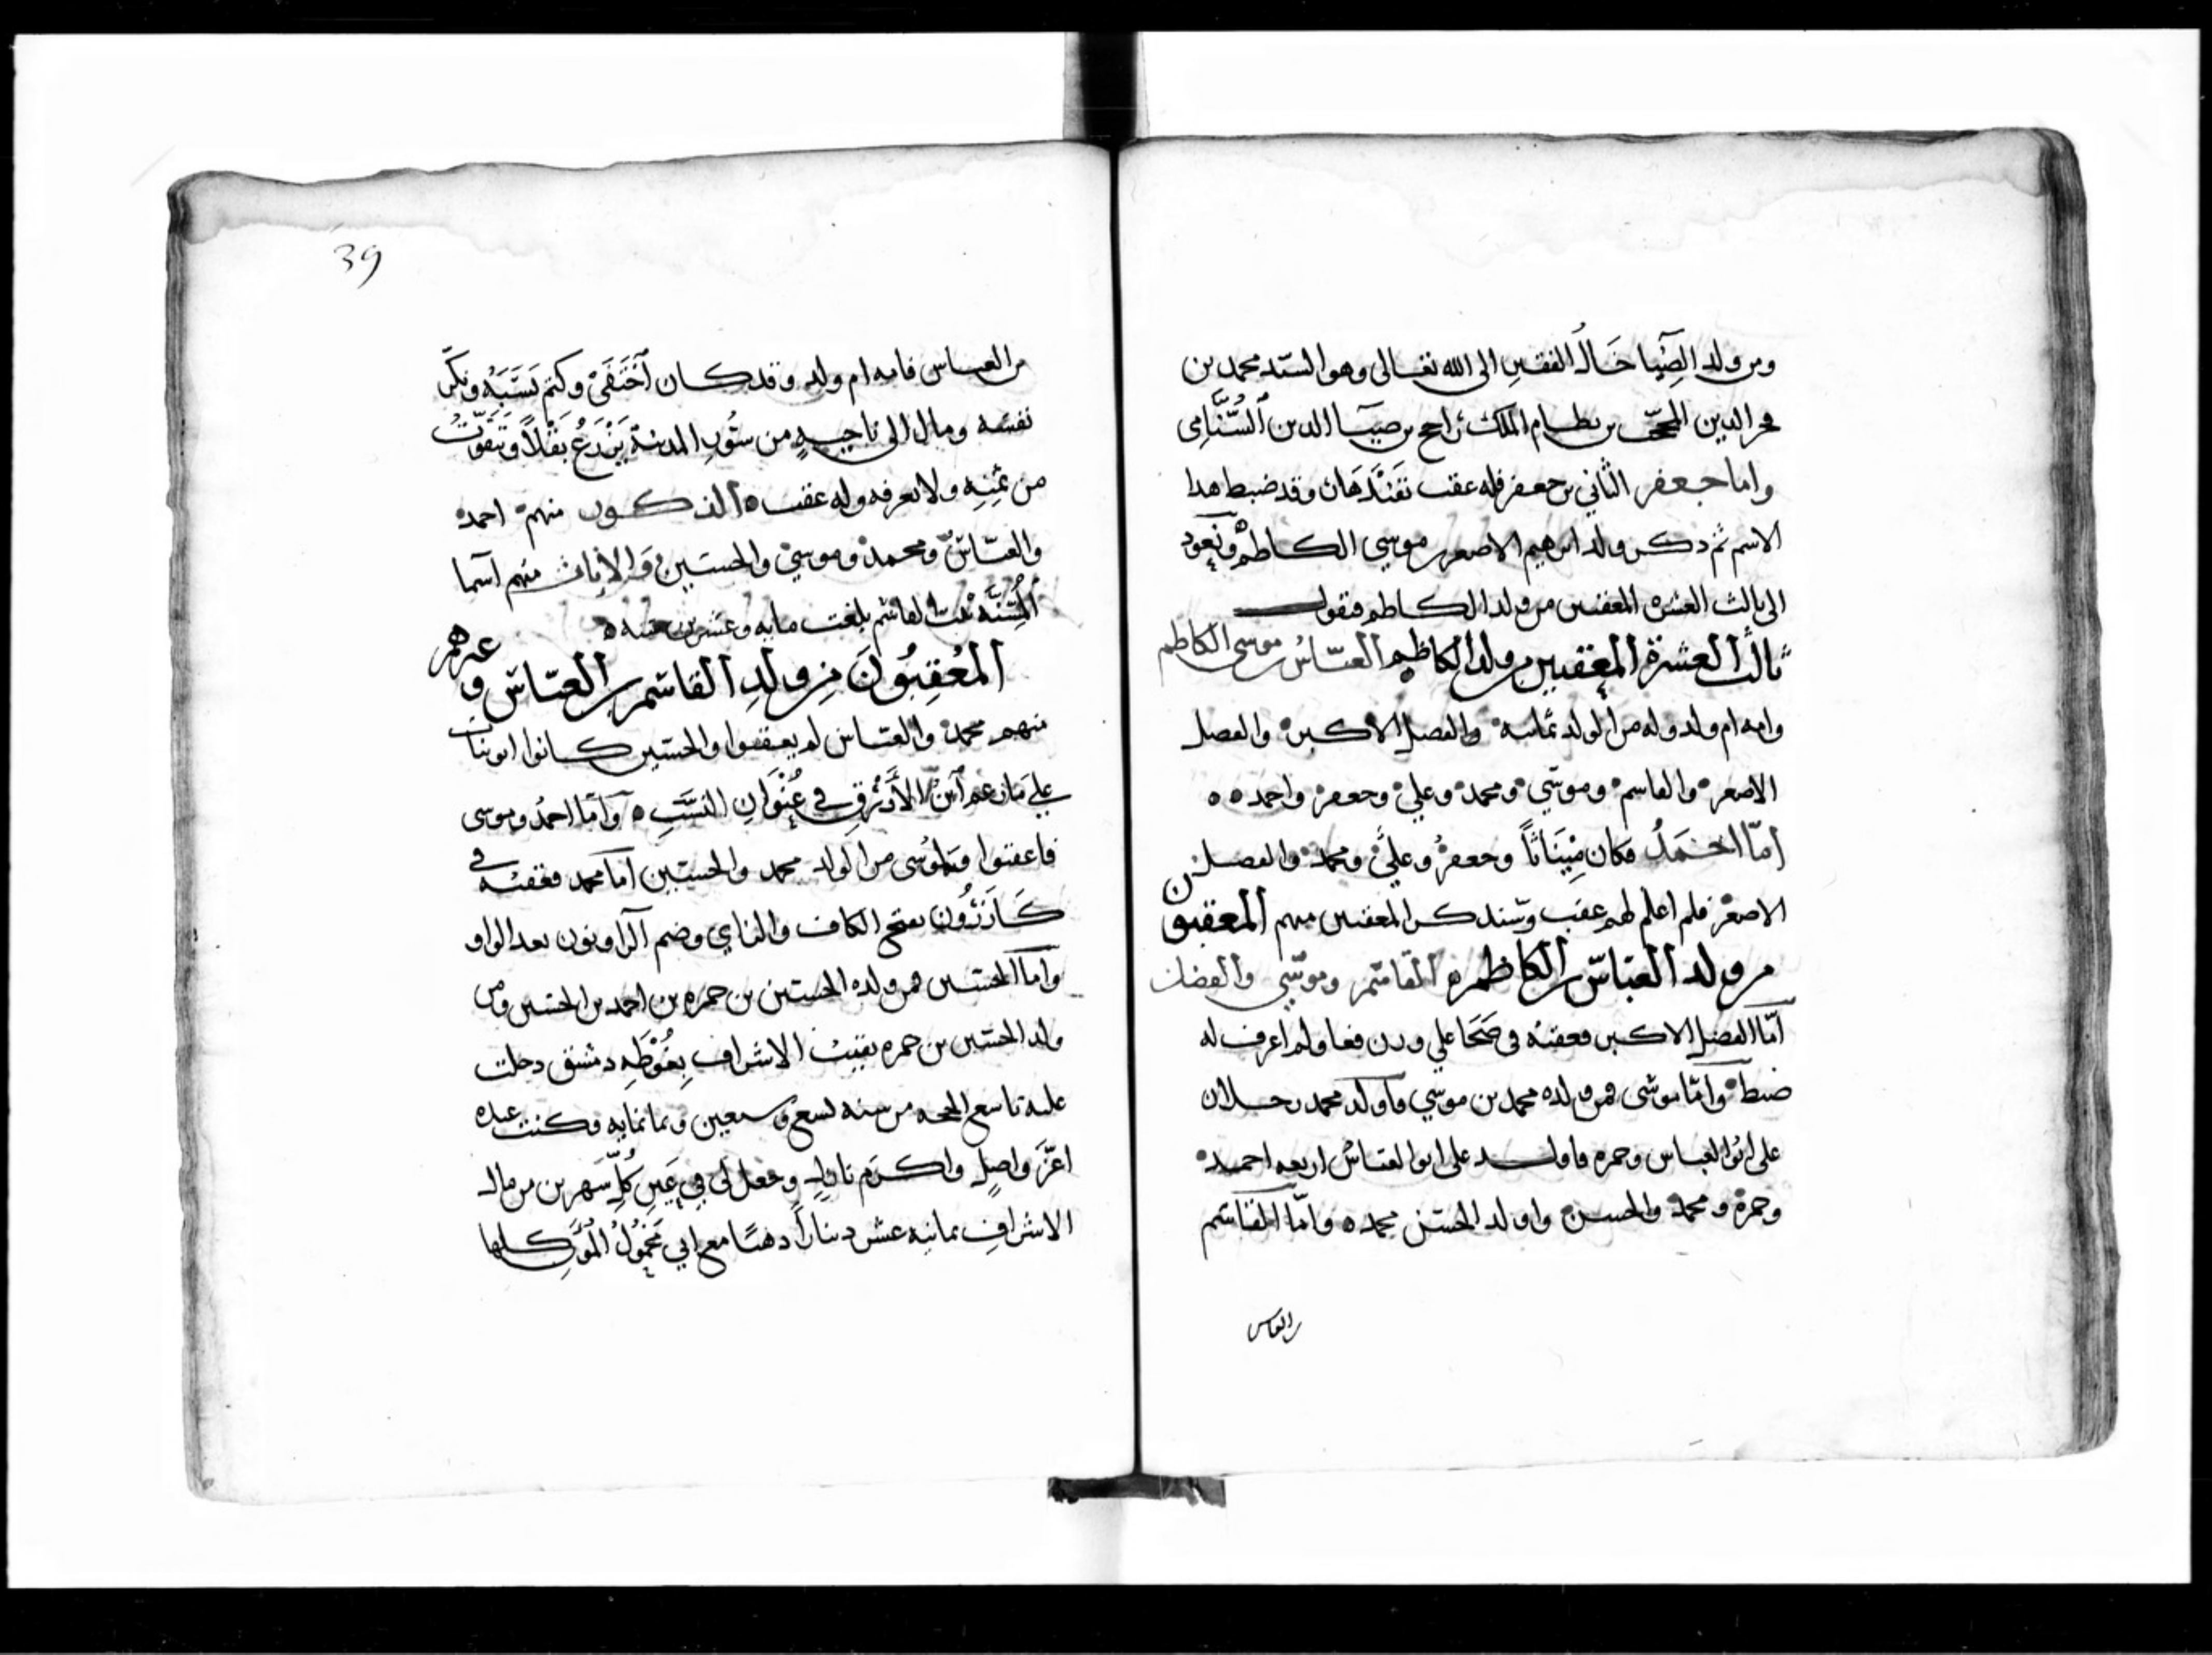 ومن ولد الضيا خال الفقير الى الله تعالى وهو السيد محمد بن
فخر الدين بن نظام الملك بن راجح بن ضيا الدين
واما جعفر الثاني بن جعفر فله عقب وقد ضبط هذا
الاسم تم ذكر ولد ابرهيم الاصغر بن موسي الكاظم ونعود
الى ثالث العشرة المعقبين من ولد الكاظم فنقول
ثالث العشرة المعقبين من ولد الكاظم العباس بن موسى الكاظم
وامه ام ولد وله من الولد ثمانيه والفضل الاكبر والفضل
الاصغر والقاسم وموسي ومحمد وعلي وجعفر واحمد
اما احمد فكان مينانا وجعفر وعلي ومحمد والفضل
الاصغر فلم اعلم لهم عقب وسنذكر المعقبين منهم المعقبون
من ولد العباس بن الكاظم القاسم وموسي والفضل
اما الفضل الاكبر فعقبه في علي وزن فعا ولم اعرف له
ضبط واما موسى فمن ولده محمد بن موسي فاولد محمد رجلان
على ابو العباس وحمزه فاولد على ابو العباس اربعه احمد
وحمزة ومحمد والحسن واولد الحسن محمد واما القاسم
بن العباس
39
بن العباس فامه ام ولد وقد كان اختفى وكتم نسبه ونكر
نفسه ومال الى ناحيه من سور المدينة يزرع بقلا ويتقوت
من ثمنه ولا يعرفه وله عقب الذكور منهم احمد
والعباس ومحمد وموسي والحسين والاناث منهم اسما
المسنه بنت القاسم بلغت مايه وعشرين سنه
المعقبون من ولد القاسم بن العباس وغيرهم
منهم محمد والعباس لم يعقبوا والحسين كانوا ابو بنات
على مازعم ابن الازرق في عنوان النسب واما احمد وموسى
فاعقبوا ولموسى من الولد محمد والحسين اما محمد فعقبه في
كازرون بفتح الكاف والزاي وضم الرا ونون بعد الواو
واما الحسين فمن ولده الحسين بن حمزه بن احمد بن الحسين ومن
ولد الحسين بن حمزه نقيب الاشراف بغوطه دمشق دخلت
عليه تاسع الحجه من سنه تسع وسبعين وثمانمايه وكنت عنده
اعز واصل واكرم نازل وجعل لي في كل شهرين من مال
الاشراف ثمانيه عشر دينارا ذهبا مع اني محمول المؤن كلها